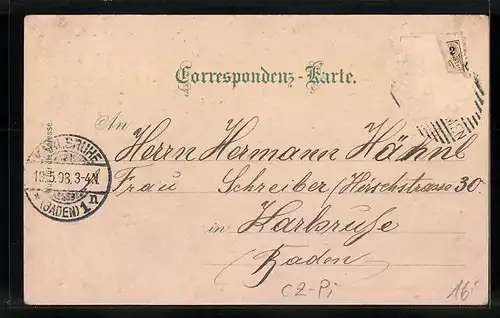 Correspondenz-Karte.
An
Herrn Hermann Hähnl
Frau Schreiber / Hirschstrasse 30
in Karlsruhe
Baden
KARLSRUHE
18.5.98. 3-4N
* (BADEN) 1 n
C2-Pi
16